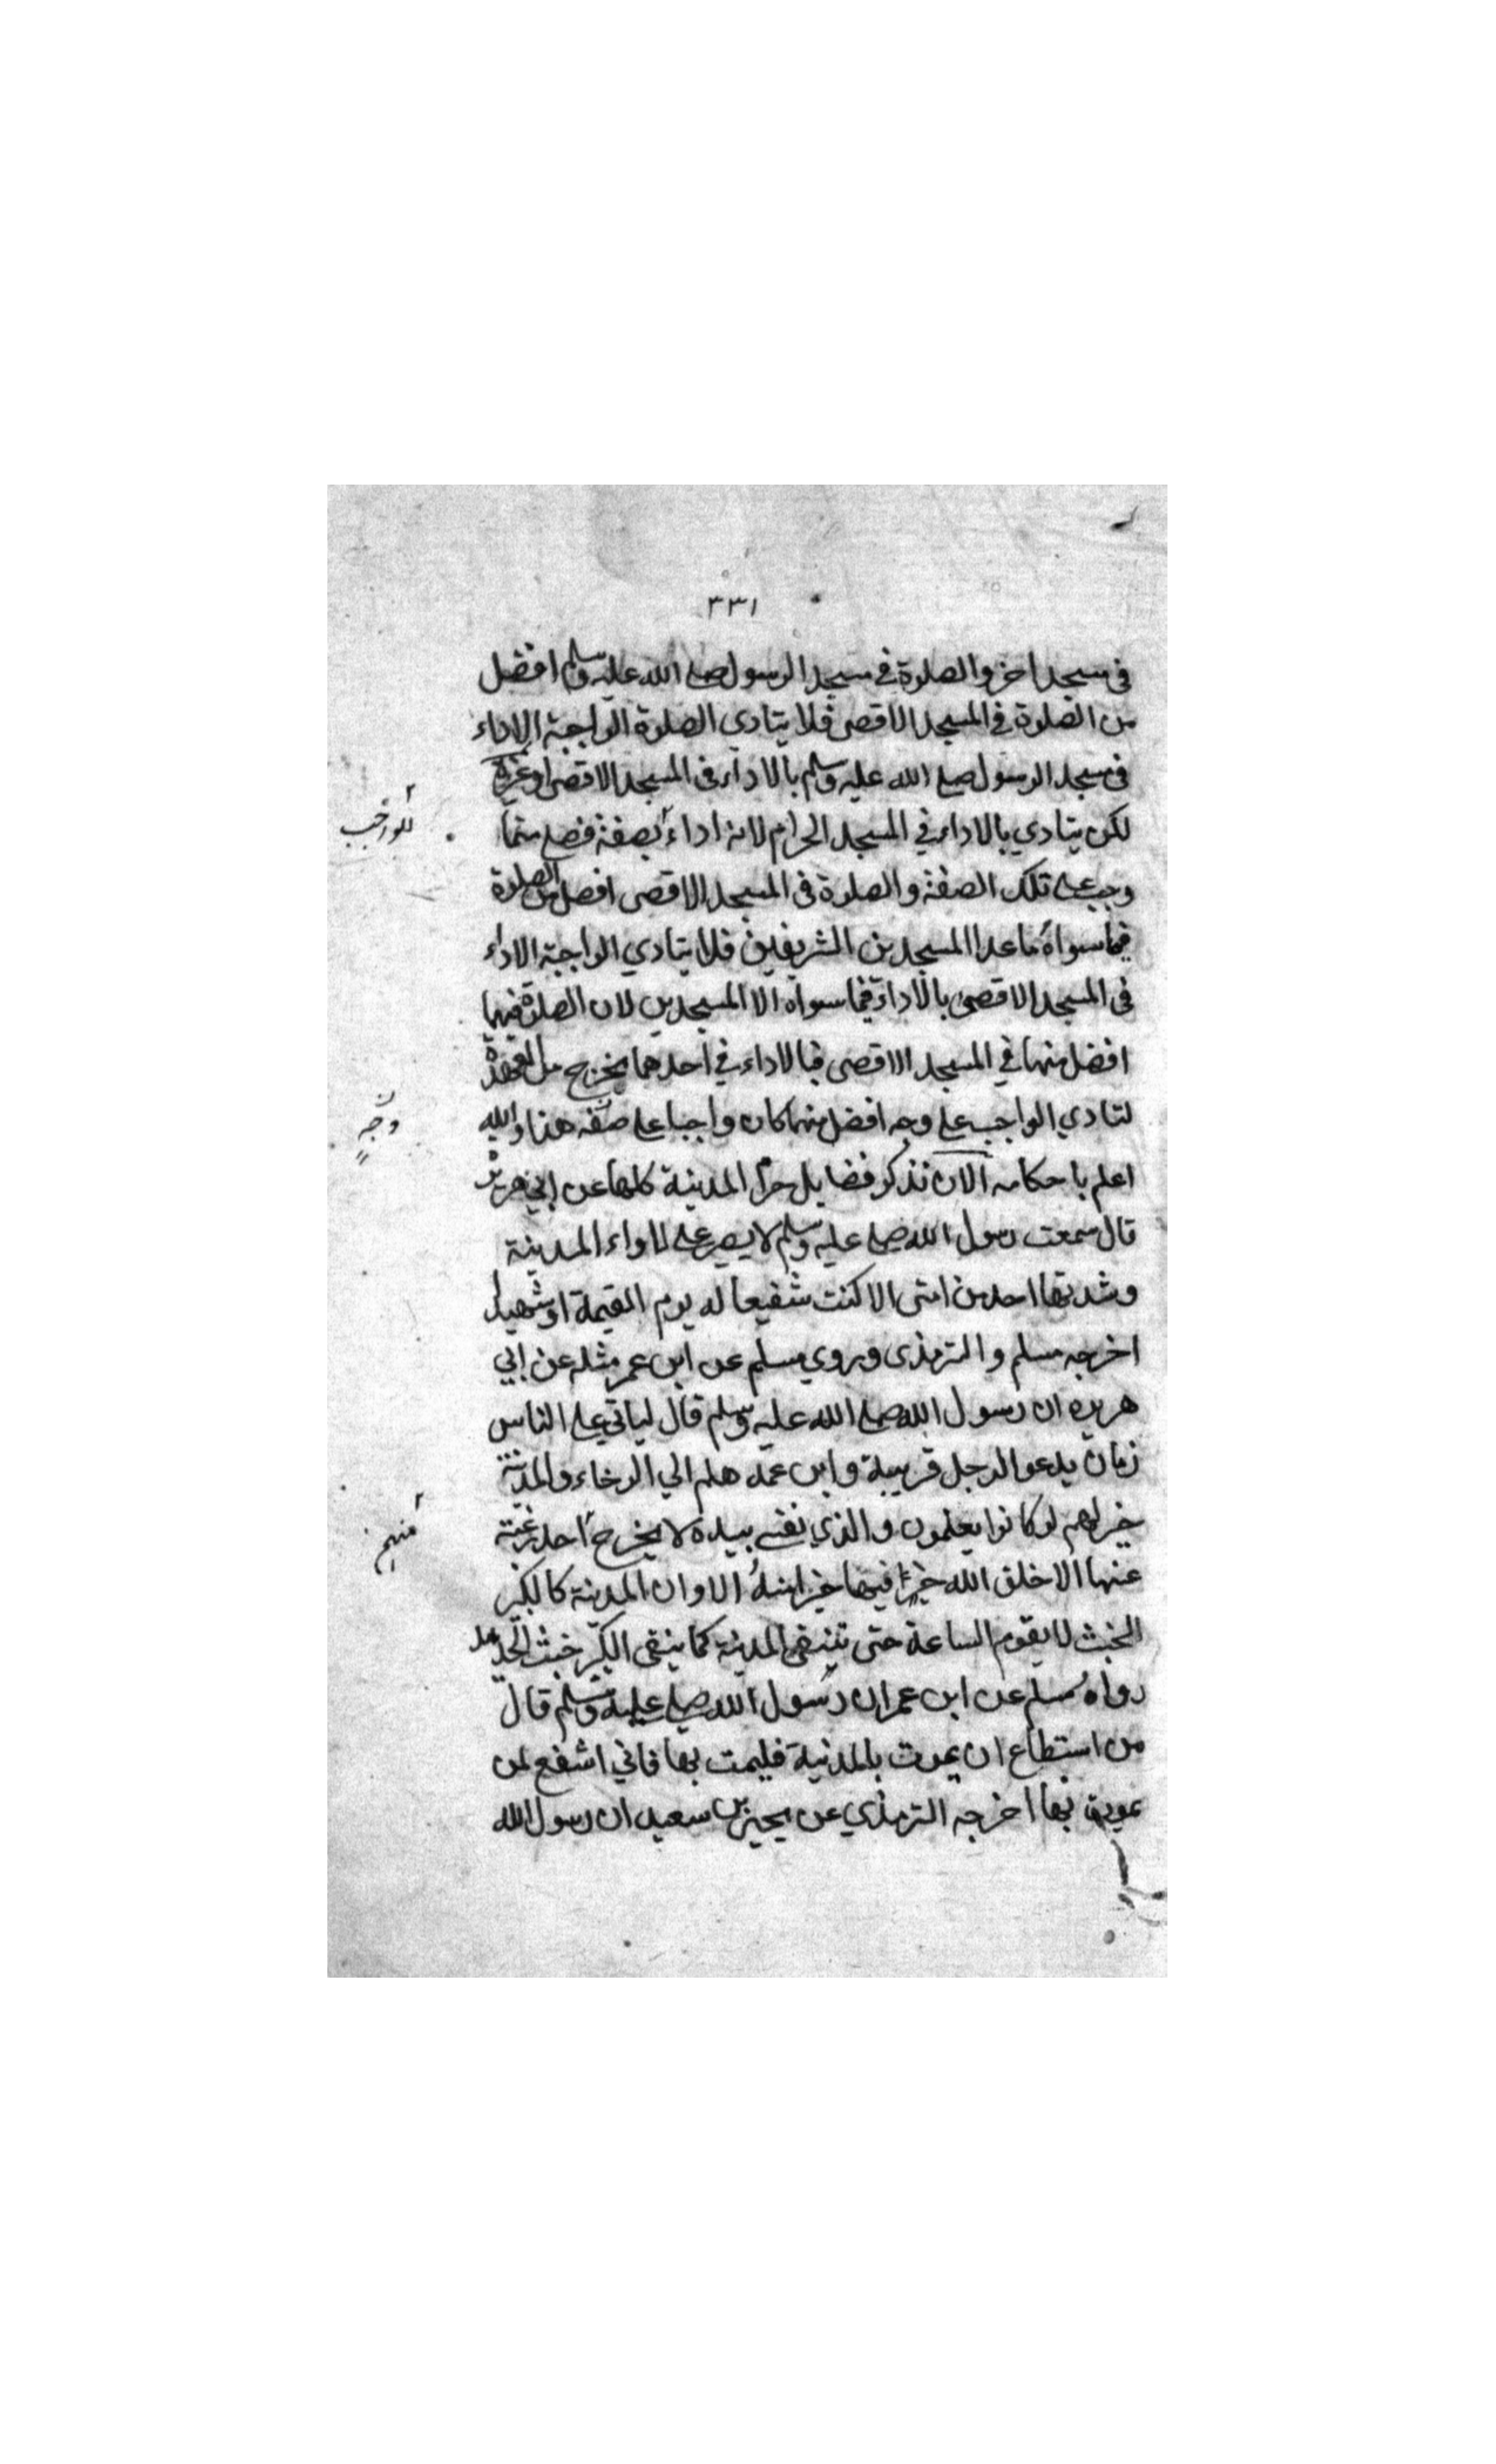 ٣٣١
فى مسجد اخر والصلوة في مسجد الرسول صلى الله عليه وسلم افضل
من الصلوة فى المسجد الاقصى فلا يتادى الصلوة الواجبة الاداء
فى مسجد الرسول صلى الله عليه وسلم بالاداء فى المسجد الاقصى او غيره
لكن يتادي بالاداء في المسجد الحرام لانه اداء بصفة افضل مما
للواجب
وجب على تلك الصفة والصلوة فى المسجد الاقصى افضل من الصلوة
فيما سواه ما عدا المسجدين الشريفين فلا يتادي الواجبة الاداء
فى المسجد الاقصى بالاداء فيما سواه الا المسجدين لان الصلوة فيهما
افضل منها في المسجد الاقصى فبالاداء في احدهما يخرج من العهدة
لتادي الواجب على وجه افضل منها كان واجبا على صفة هذا والله
اعلم باحكامه الآن نذكر فضايل حرم المدينة كلها عن ابي هريرة
قال سمعت رسول الله صلى عليه وسلم لا يصبر على لاواء المدينة
وشدتها احد من امتى الا كنت شفيعا له يوم القيمة او شهيدا
اخرجه مسلم والترمذى وروي مسلم عن ابن عمر مثله عن ابي
هريره ان رسول الله صلى الله عليه وسلم قال لياتي على الناس
زمان يدعو الرجل قريبة وابن عمه هلم الي الرخاء والمدينة
خير لهم لو كانوا يعلمون والذي نفسي بيده لا يخرج احد رغبة
منهم
عنها الا خلق الله خيرا فيها خير امنه الا وان المدينة كالكير
الخبث لا يقوم الساعة حتى تنقى المدينة كما ينقى الكير خبث الحديد
رواه مسلم عن ابن عمر ان رسول الله صلى عليه وسلم قال
من استطاع ان يموت بالمدينة فليمت بها فاني اشفع لمن
يموت بها اخرجه الترمذي عن يحيى بن سعيد ان رسول الله